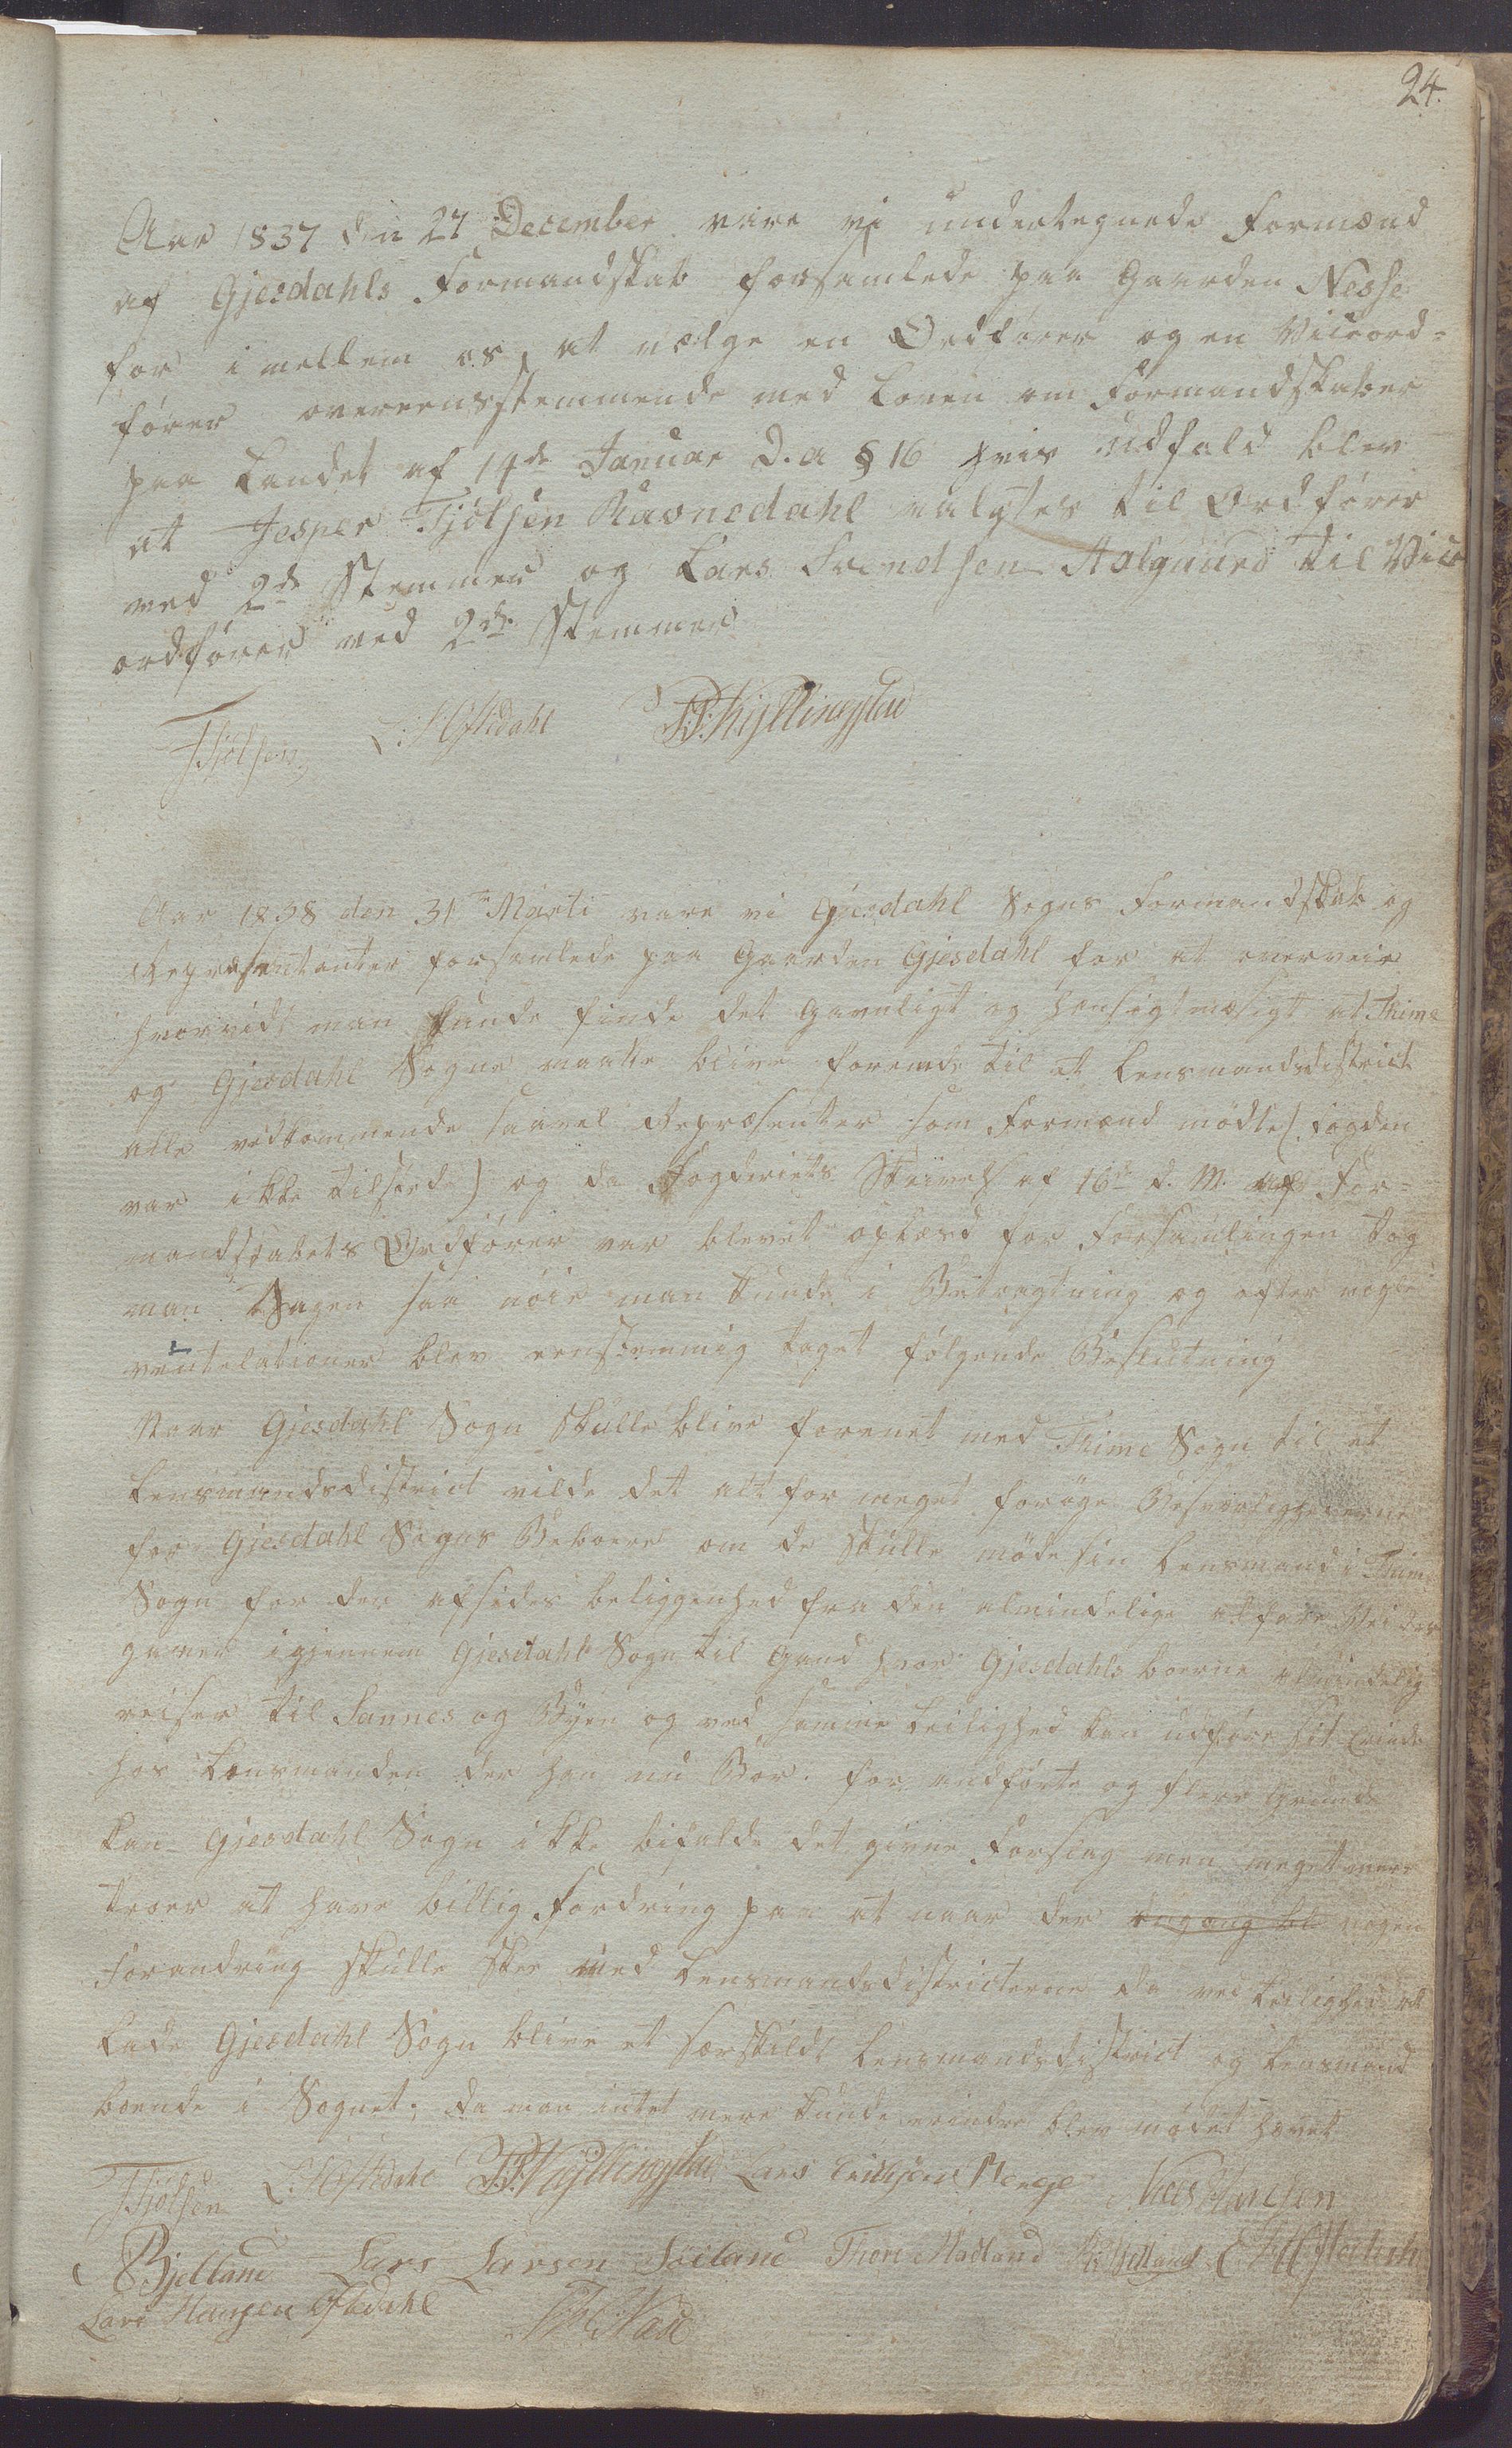 24.
Aar 1837 den 27 December vare vi undertegnede Formænd
af Gjesdahls Formandskab forsamlede paa Gaarden Nesse
for imellem os at vælge en Ordfører og en Viceord-
fører overeensstemmende med Loven om Formandskaber
paa Landet af 14de Januar D. a § 16 hvis udfald blev
at Jesper Tjølsen Ravnedahl valgtes til Ordfører
med 2de Stemmer og Lars Svendsen Aalgaard til Vice
ordfører med 2de Stemmer
Tjölsen
Aar 1838 den 31te Marti vare vi Gjesdahl Sogns Formandskab og
Repræsentanter forsamlede paa Gaarden Gjesdahl for at overveie
hvorvidt man kunde finde det gavnligt og hensigtmæsigt at Thime
og Gjesdahl Sogne maatte blive forenede til et Lensmandsdistrict
alle vedkommende saavel Repræsenter som Formænd mødte (Fogden
var ikke tilstede) og da Fogderiets Skrivelse af 16de d. M. af For-
mandskabets Ordfører var blevet oplæsd for Forsamlingen tog
man Sagen saa nøie man kunde i Betragtning og efter nogle
ventelationer blev eenstemmig taget følgende Beslutning
Naar Gjesdahl Sogn skulle blive forenet med Thime Sogn til et
Lensmandsdistrict vilde det alt for meget forøge Besværlighederne
for Gjesdahl Sogns Beboere om de skulle møde sin Lensmand i Thime
Sogn for der afsides beliggenhed fra den almindelige alfare Vei der
gaaer igjennem Gjesdahl Sogn til Gand hvor Gjesdahls boerne almindelig
reiser til Sannes og Byen og ved samme Leilighed kan udføre sit Erinde
hos Lensmanden der han nu Boer. for andførte og flere Grunde
kan Gjesdahl Sogn ikke bifalde det givne Forslag men meget mere
troer at have billig Fordring paa at naar der engang bl nogen
Forandring skulle skee med Lensmandsdistricterne da ved Leilighed at
lade Gjesdahl Sogn blive et særskildt Lensmandsdistrict og Lensmand
boende i Sognet; da man intet mere kunde erindre blev mødet hævet
Tjölsen Lars
Bjelland Lars Larsen Thore Madland
Lars Hansen